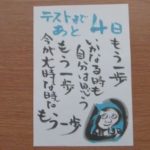 テストまで
あと 4日
もう一歩
いかなる時も
自分は思う
もう一歩
今が大切な時だ
もう一歩